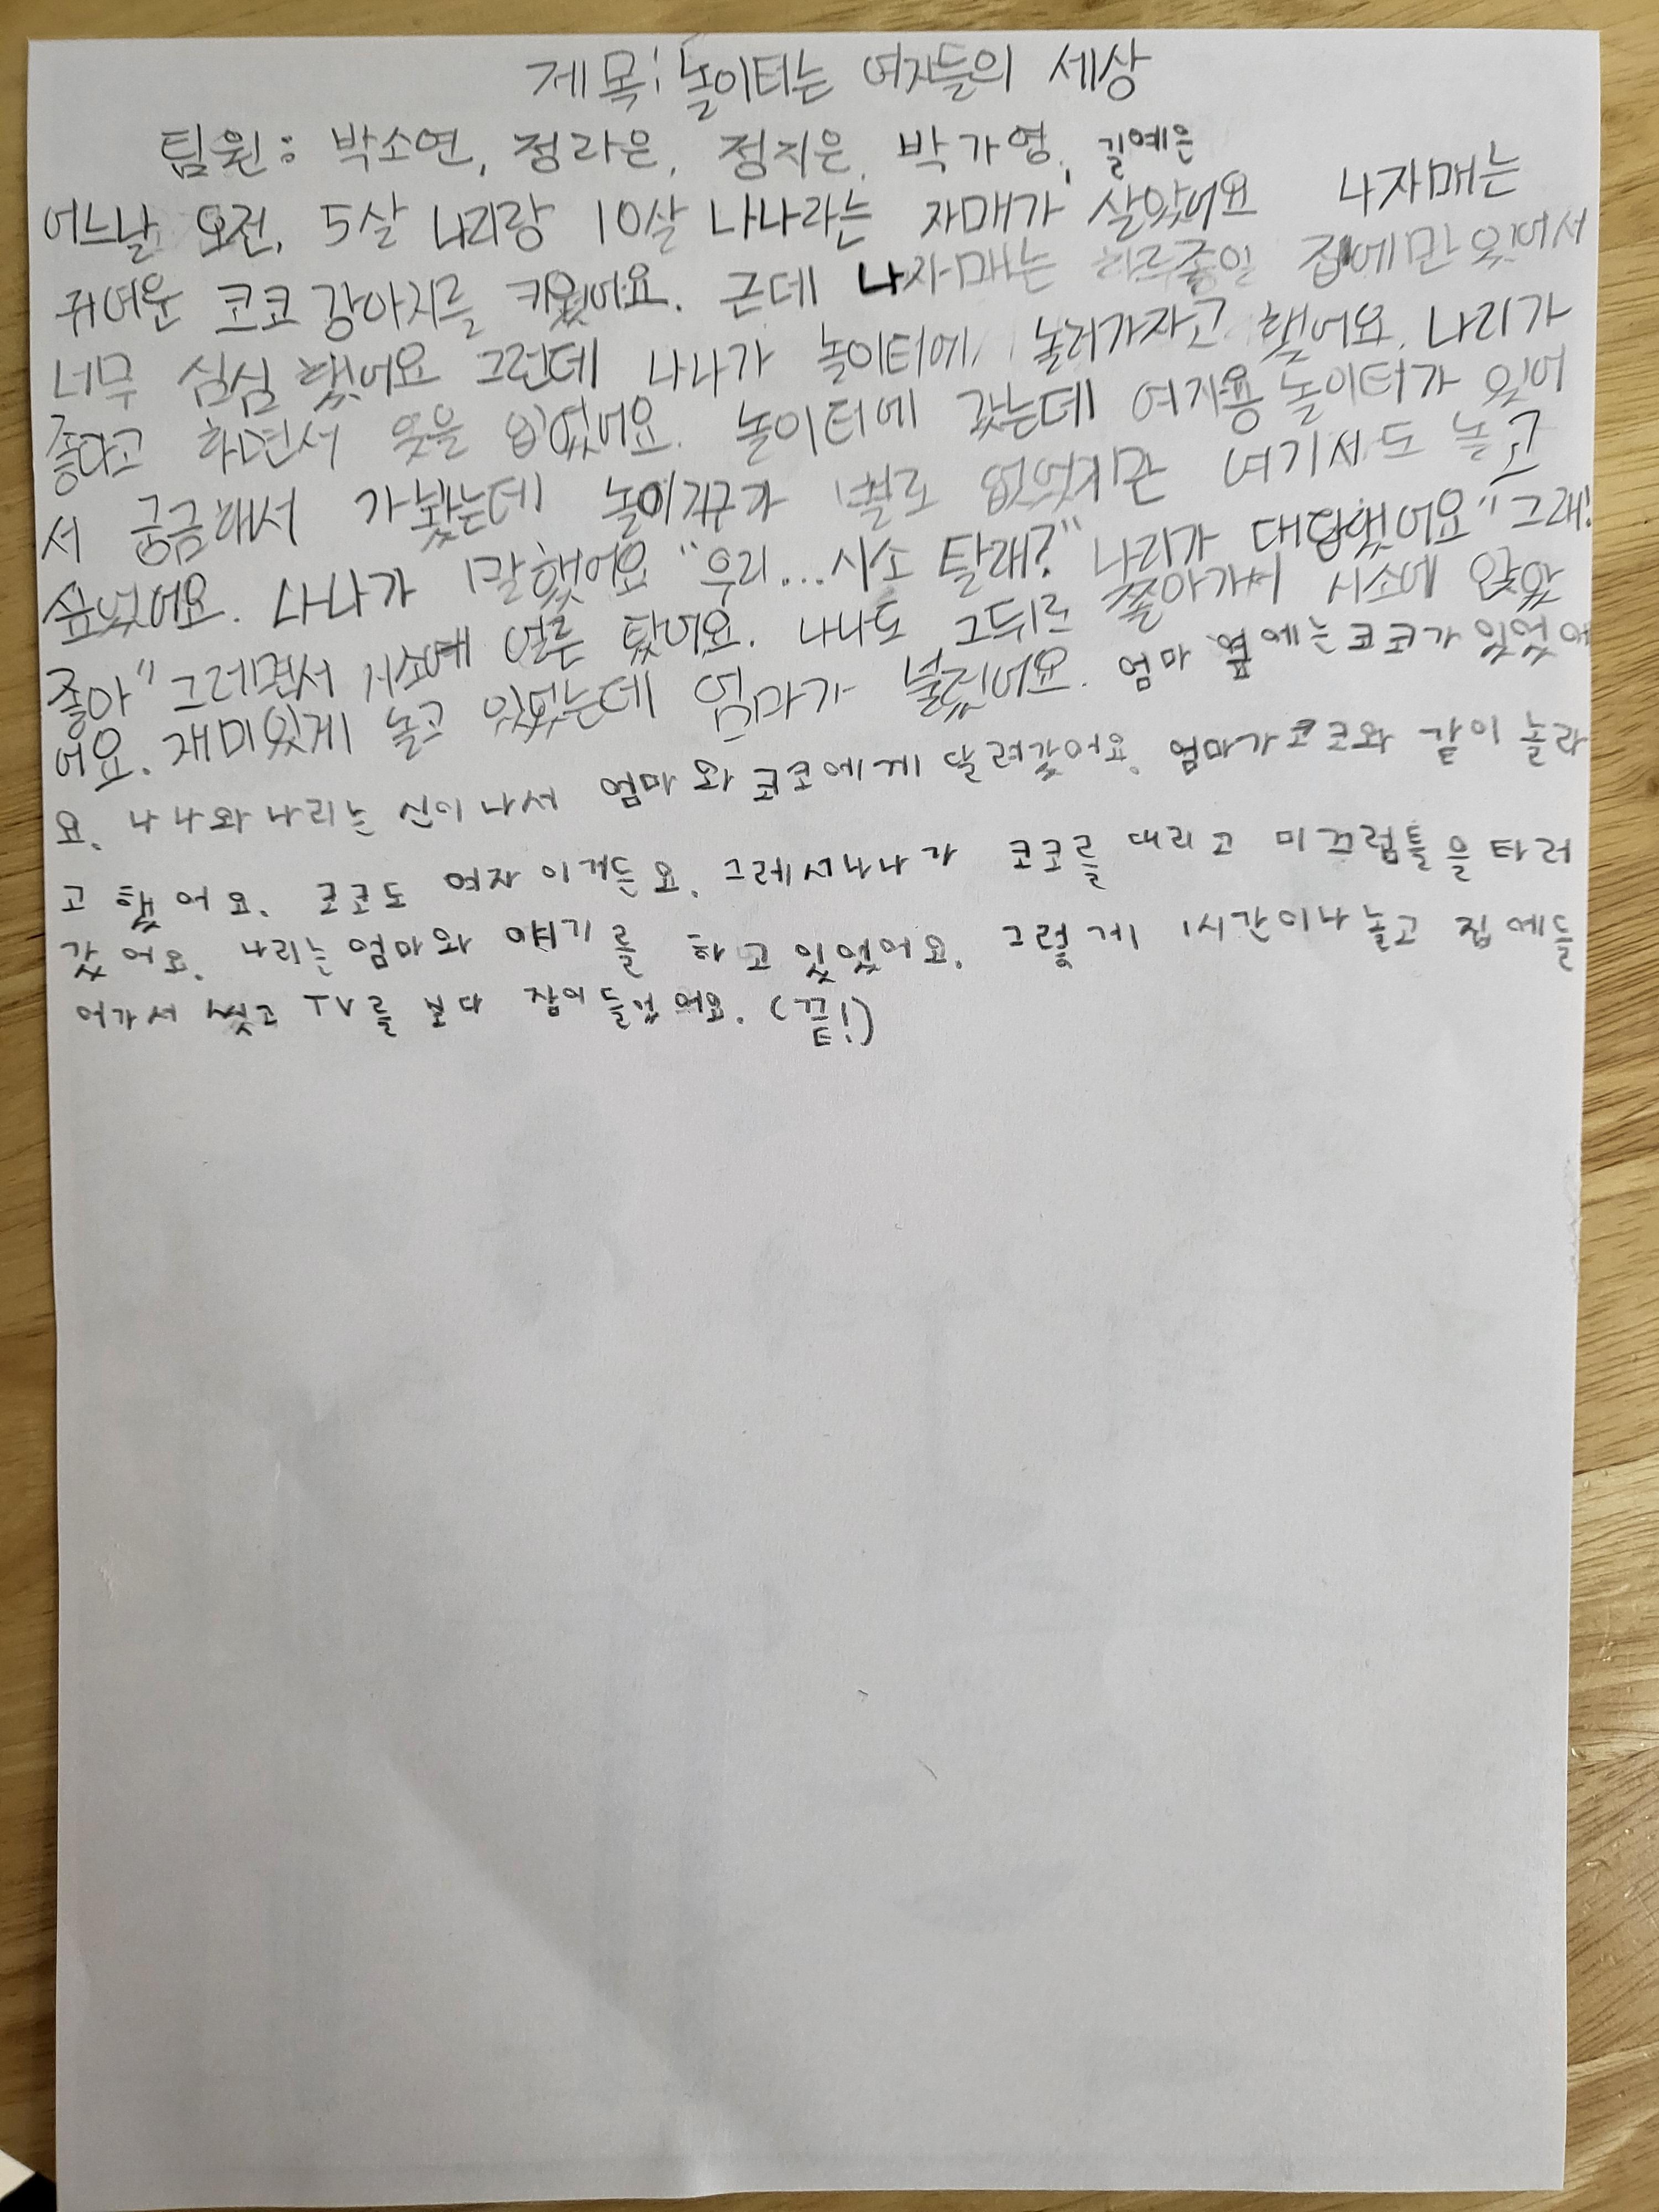 제목: 놀이터는 여자들의 세상
팀원: 박소연, 정라은, 정지은, 박가영, 길예은
어느날 오전, 5살 나리랑 10살 나나라는 자매가 살았어요 나자매는
귀여운 코코 강아지를 키웠어요. 근데 나자매는 하루종일 집에만 있어서
너무 심심 했어요 그런데 나나가 놀이터에 놀러가자고 했어요. 나리가
좋다고 하면서 옷을 입었어요. 놀이터에 갔는데 여자용 놀이터가 있어
서 궁금해서 가봤는데 놀이기구가 별로 없었지만 여기서도 놀고
싶었어요. 나나가 말했어요 "우리... 시소 탈래?" 나리가 대답했어요 "그래!
좋아" 그레면서 시소에 얼른 탔어요. 나나도 그뒤르 쫄아가서 시소에 앉았
어요. 재미있게 놀고 있었는데 엄마가 불렀어요. 엄마 옆에는 코코가 있었어
요. 나나와 나리는 신이나서 엄마와 코코에게 달려갔어요. 엄마가 코코와 같이 놀라
고 했어요. 코코도 여자이거든요. 그레서 나나가 코코를 대리고 미끄럼틀을 타러
갔어요. 나리는 엄마와 얘기를 하고 있었어요. 그렇게 1시간이나 놀고 집에들
어가서 씻고 TV를 보다 잠이 들었어요. (끝!)